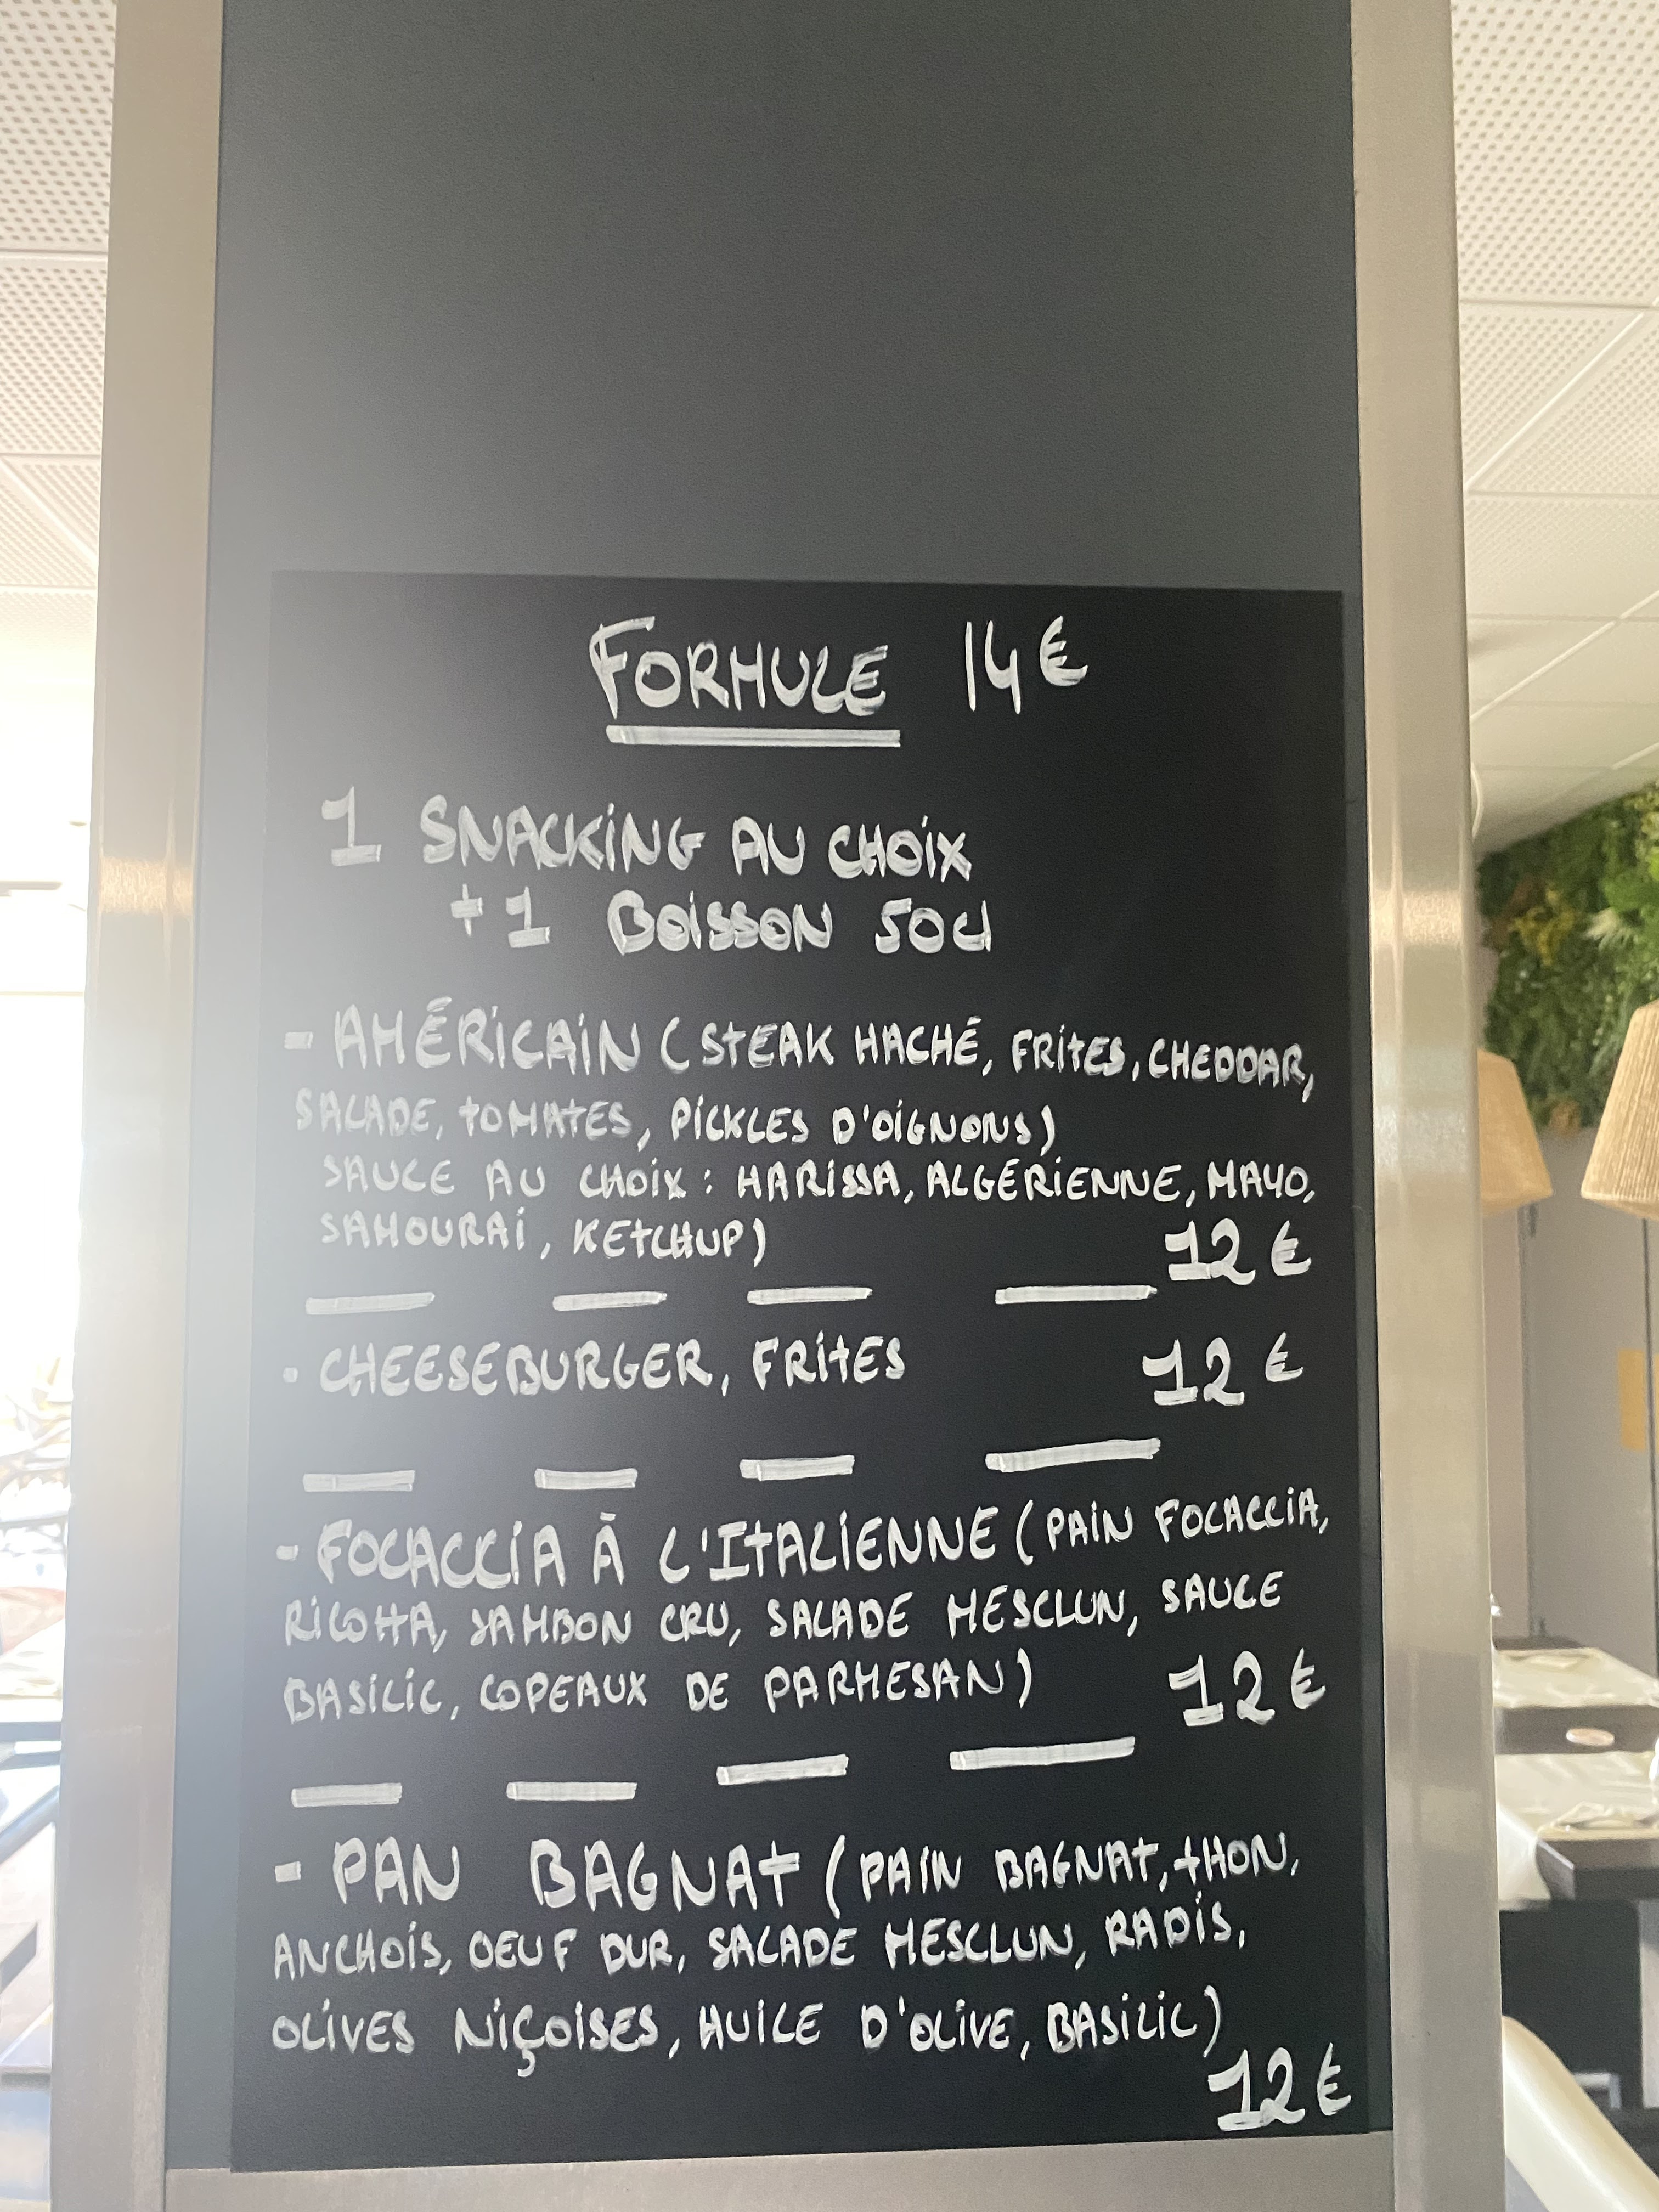 FORMULE 14€
1 SNACKING AU CHOIX
+1 BOISSON 50cl
- AMÉRICAIN (STEAK HACHÉ, FRITES, CHEDDAR,
SALADE, TOMATES, PICKLES D'OIGNONS)
SAUCE AU CHOIX : HARISSA, ALGÉRIENNE, MAYO,
SAMOURAI, KETCHUP)
12 €
· CHEESEBURGER, FRITES 12 €
- FOCACCIA À L'ITALIENNE (PAIN FOCACCIA,
RICOTTA, JAMBON CRU, SALADE MESCLUN, SAUCE
BASILIC, COPEAUX DE PARMESAN) 12 €
- PAN BAGNAT (PAIN BAGNAT, THON,
ANCHOIS, OEUF DUR, SALADE MESCLUN, RADIS,
OLIVES NIÇOISES, HUILE D'OLIVE, BASILIC)
12 €